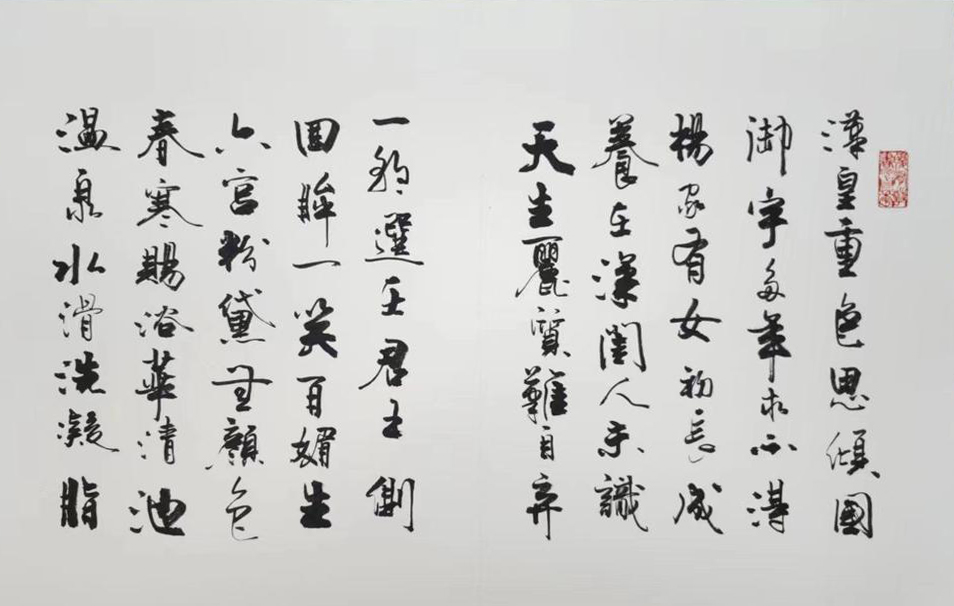 漢皇重色思傾國
御宇多年求不得
楊家有女初長成
養在深閨人未識
天生麗質難自弃
一朝選在君王側
回眸一笑百媚生
六宮粉黛無顏色
春寒賜浴華清池
溫泉水滑洗凝脂